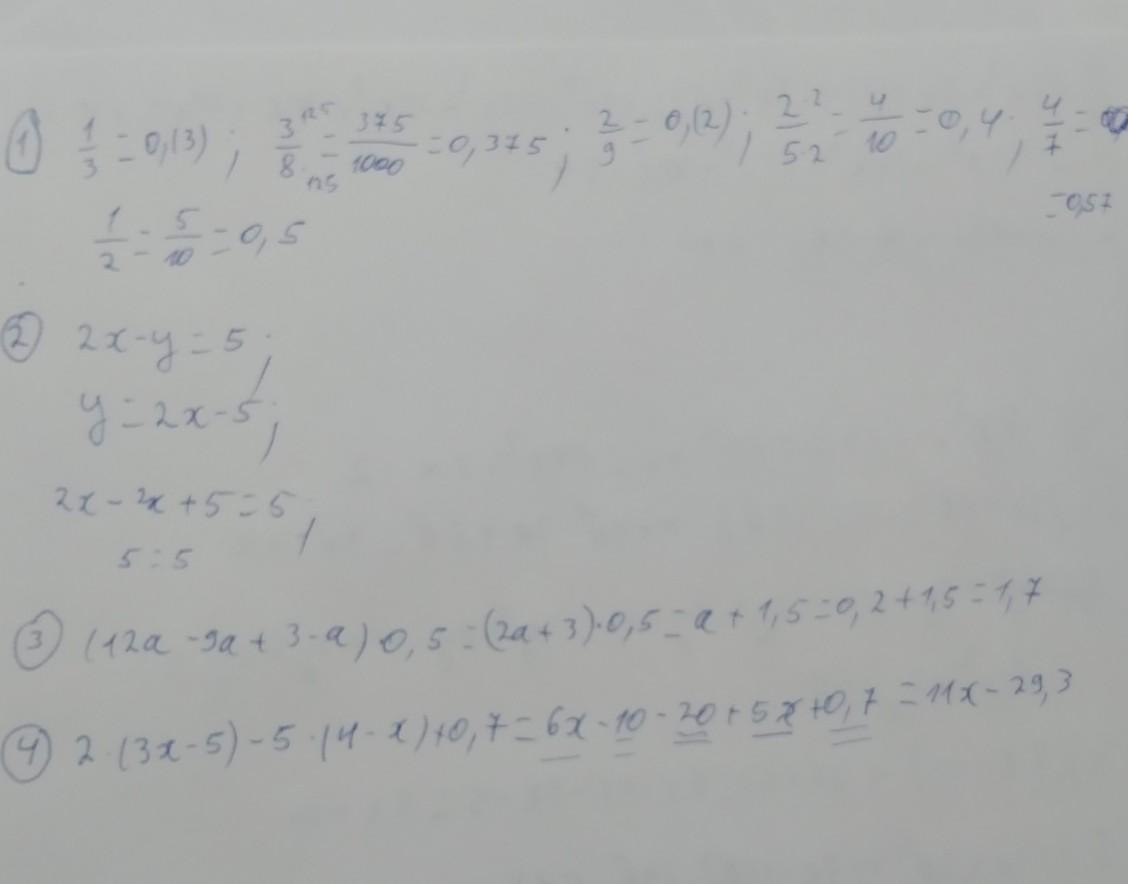 ① 1/3 = 0,(3) ; 3·125/8·125 = 375/1000 = 0,375 ; 2/9 = 0,(2) ; 2·2/5·2 = 4/10 = 0,4 ; 4/7 =
= 0,57
1/2 = 5/10 = 0,5
② 2x - y = 5 ;
y = 2x - 5 ;
2x - 2x + 5 = 5 ;
5 = 5
③ (12a - 9a + 3 - a) 0,5 = (2a + 3) · 0,5 = a + 1,5 = 0,2 + 1,5 = 1,7
④ 2 · (3x - 5) - 5 · (4 - x) + 0,7 = 6x - 10 - 20 + 5x + 0,7 = 11x - 29,3